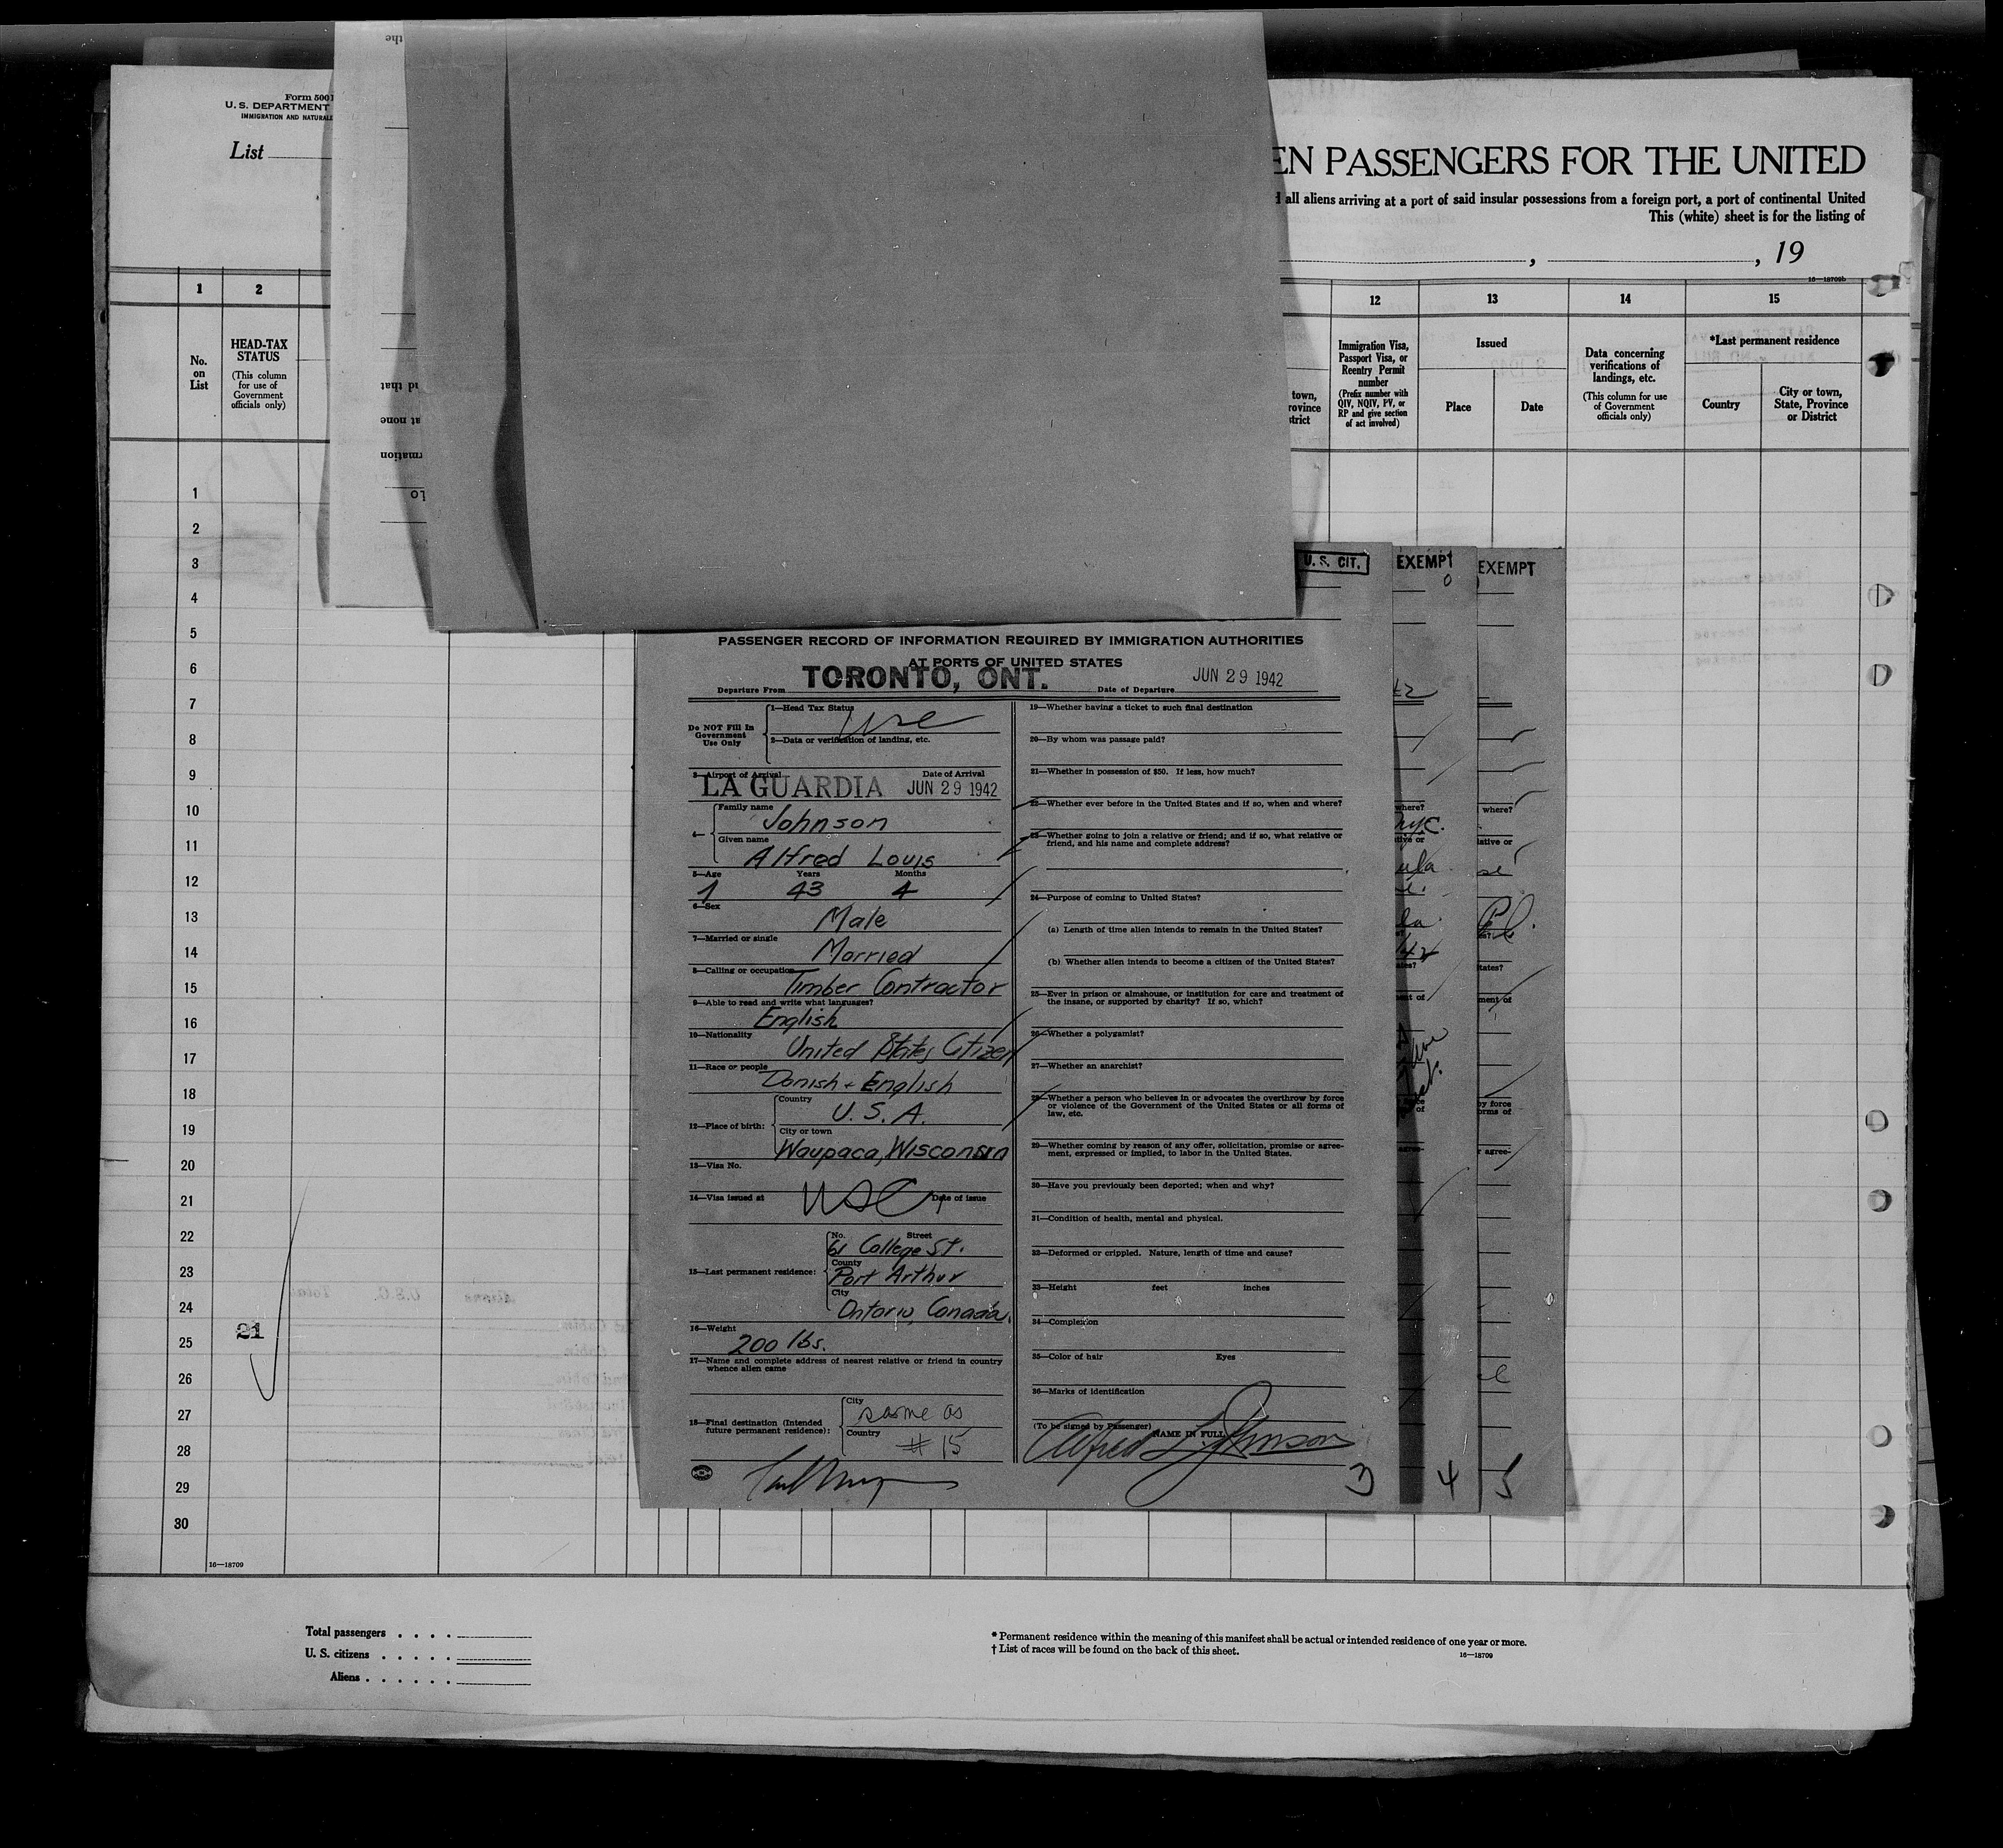 Form 5001
U. S. DEPARTMENT
IMMIGRATION AND NATURALI
List
the
id that
at none
rmation
to
EN PASSENGERS FOR THE UNITED
d all aliens arriving at a port of said insular possessions from a foreign port, a port of continental United
This (white) sheet is for the listing of
, , 19
16—18709b
1 2 12 13 14 15
No. on List
HEAD-TAX STATUS
(This column for use of Government officials only)
town,
rovince
strict
Immigration Visa, Passport Visa, or Reentry Permit number
(Prefix number with QIV, NQIV, PV, or RP and give section of act involved)
Issued
Place Date
Data concerning verifications of landings, etc.
(This column for use of Government officials only)
*Last permanent residence
Country
City or town, State, Province or District
1
2
3
4
5
6
7
8
9
10
11
12
13
14
15
16
17
18
19
20
21
22
23
24
25
26
27
28
29
30
21
16—18709
U. S. CIT.
EXEMPT
EXEMPT
PASSENGER RECORD OF INFORMATION REQUIRED BY IMMIGRATION AUTHORITIES
AT PORTS OF UNITED STATES
Departure From TORONTO, ONT. Date of Departure JUN 29 1942
Do NOT Fill In Government Use Only
1—Head Tax Status usc
2—Data or verification of landing, etc.
3—Airport of Arrival LA GUARDIA Date of Arrival JUN 29 1942
4— Family name Johnson
Given name Alfred Louis
5—Age Years 43 Months 4
6—Sex Male
7—Married or single Married
8—Calling or occupation Timber Contractor
9—Able to read and write what languages? English
10—Nationality United States Citizen
11—Race or people Danish + English
12—Place of birth: Country U. S. A.
City or town Waupaca, Wisconsin
13—Visa No.
14—Visa issued at USC Date of issue
15—Last permanent residence: No. Street 61 College St.
County Port Arthur
City Ontario, Canada.
16—Weight 200 lbs.
17—Name and complete address of nearest relative or friend in country whence alien came
18—Final destination (Intended future permanent residence): City same as
Country # 15
19—Whether having a ticket to such final destination
20—By whom was passage paid?
21—Whether in possession of $50. If less, how much?
22—Whether ever before in the United States and if so, when and where?
23—Whether going to join a relative or friend; and if so, what relative or friend, and his name and complete address?
24—Purpose of coming to United States?
(a) Length of time alien intends to remain in the United States?
(b) Whether alien intends to become a citizen of the United States?
25—Ever in prison or almshouse, or institution for care and treatment of the insane, or supported by charity? If so, which?
26—Whether a polygamist?
27—Whether an anarchist?
28—Whether a person who believes in or advocates the overthrow by force or violence of the Government of the United States or all forms of law, etc.
29—Whether coming by reason of any offer, solicitation, promise or agreement, expressed or implied, to labor in the United States.
30—Have you previously been deported; when and why?
31—Condition of health, mental and physical.
32—Deformed or crippled. Nature, length of time and cause?
33—Height feet inches
34—Complexion
35—Color of hair Eyes
36—Marks of identification
(To be signed by Passenger) NAME IN FULL
Alfred L. Johnson
3 4 5
where?
nyc.
where?
lative or
tates?
ment of
by force
orms of
r agree-
Total passengers . . . .
U. S. citizens . . . . .
Aliens . . . . . .
* Permanent residence within the meaning of this manifest shall be actual or intended residence of one year or more.
† List of races will be found on the back of this sheet.
16—18709